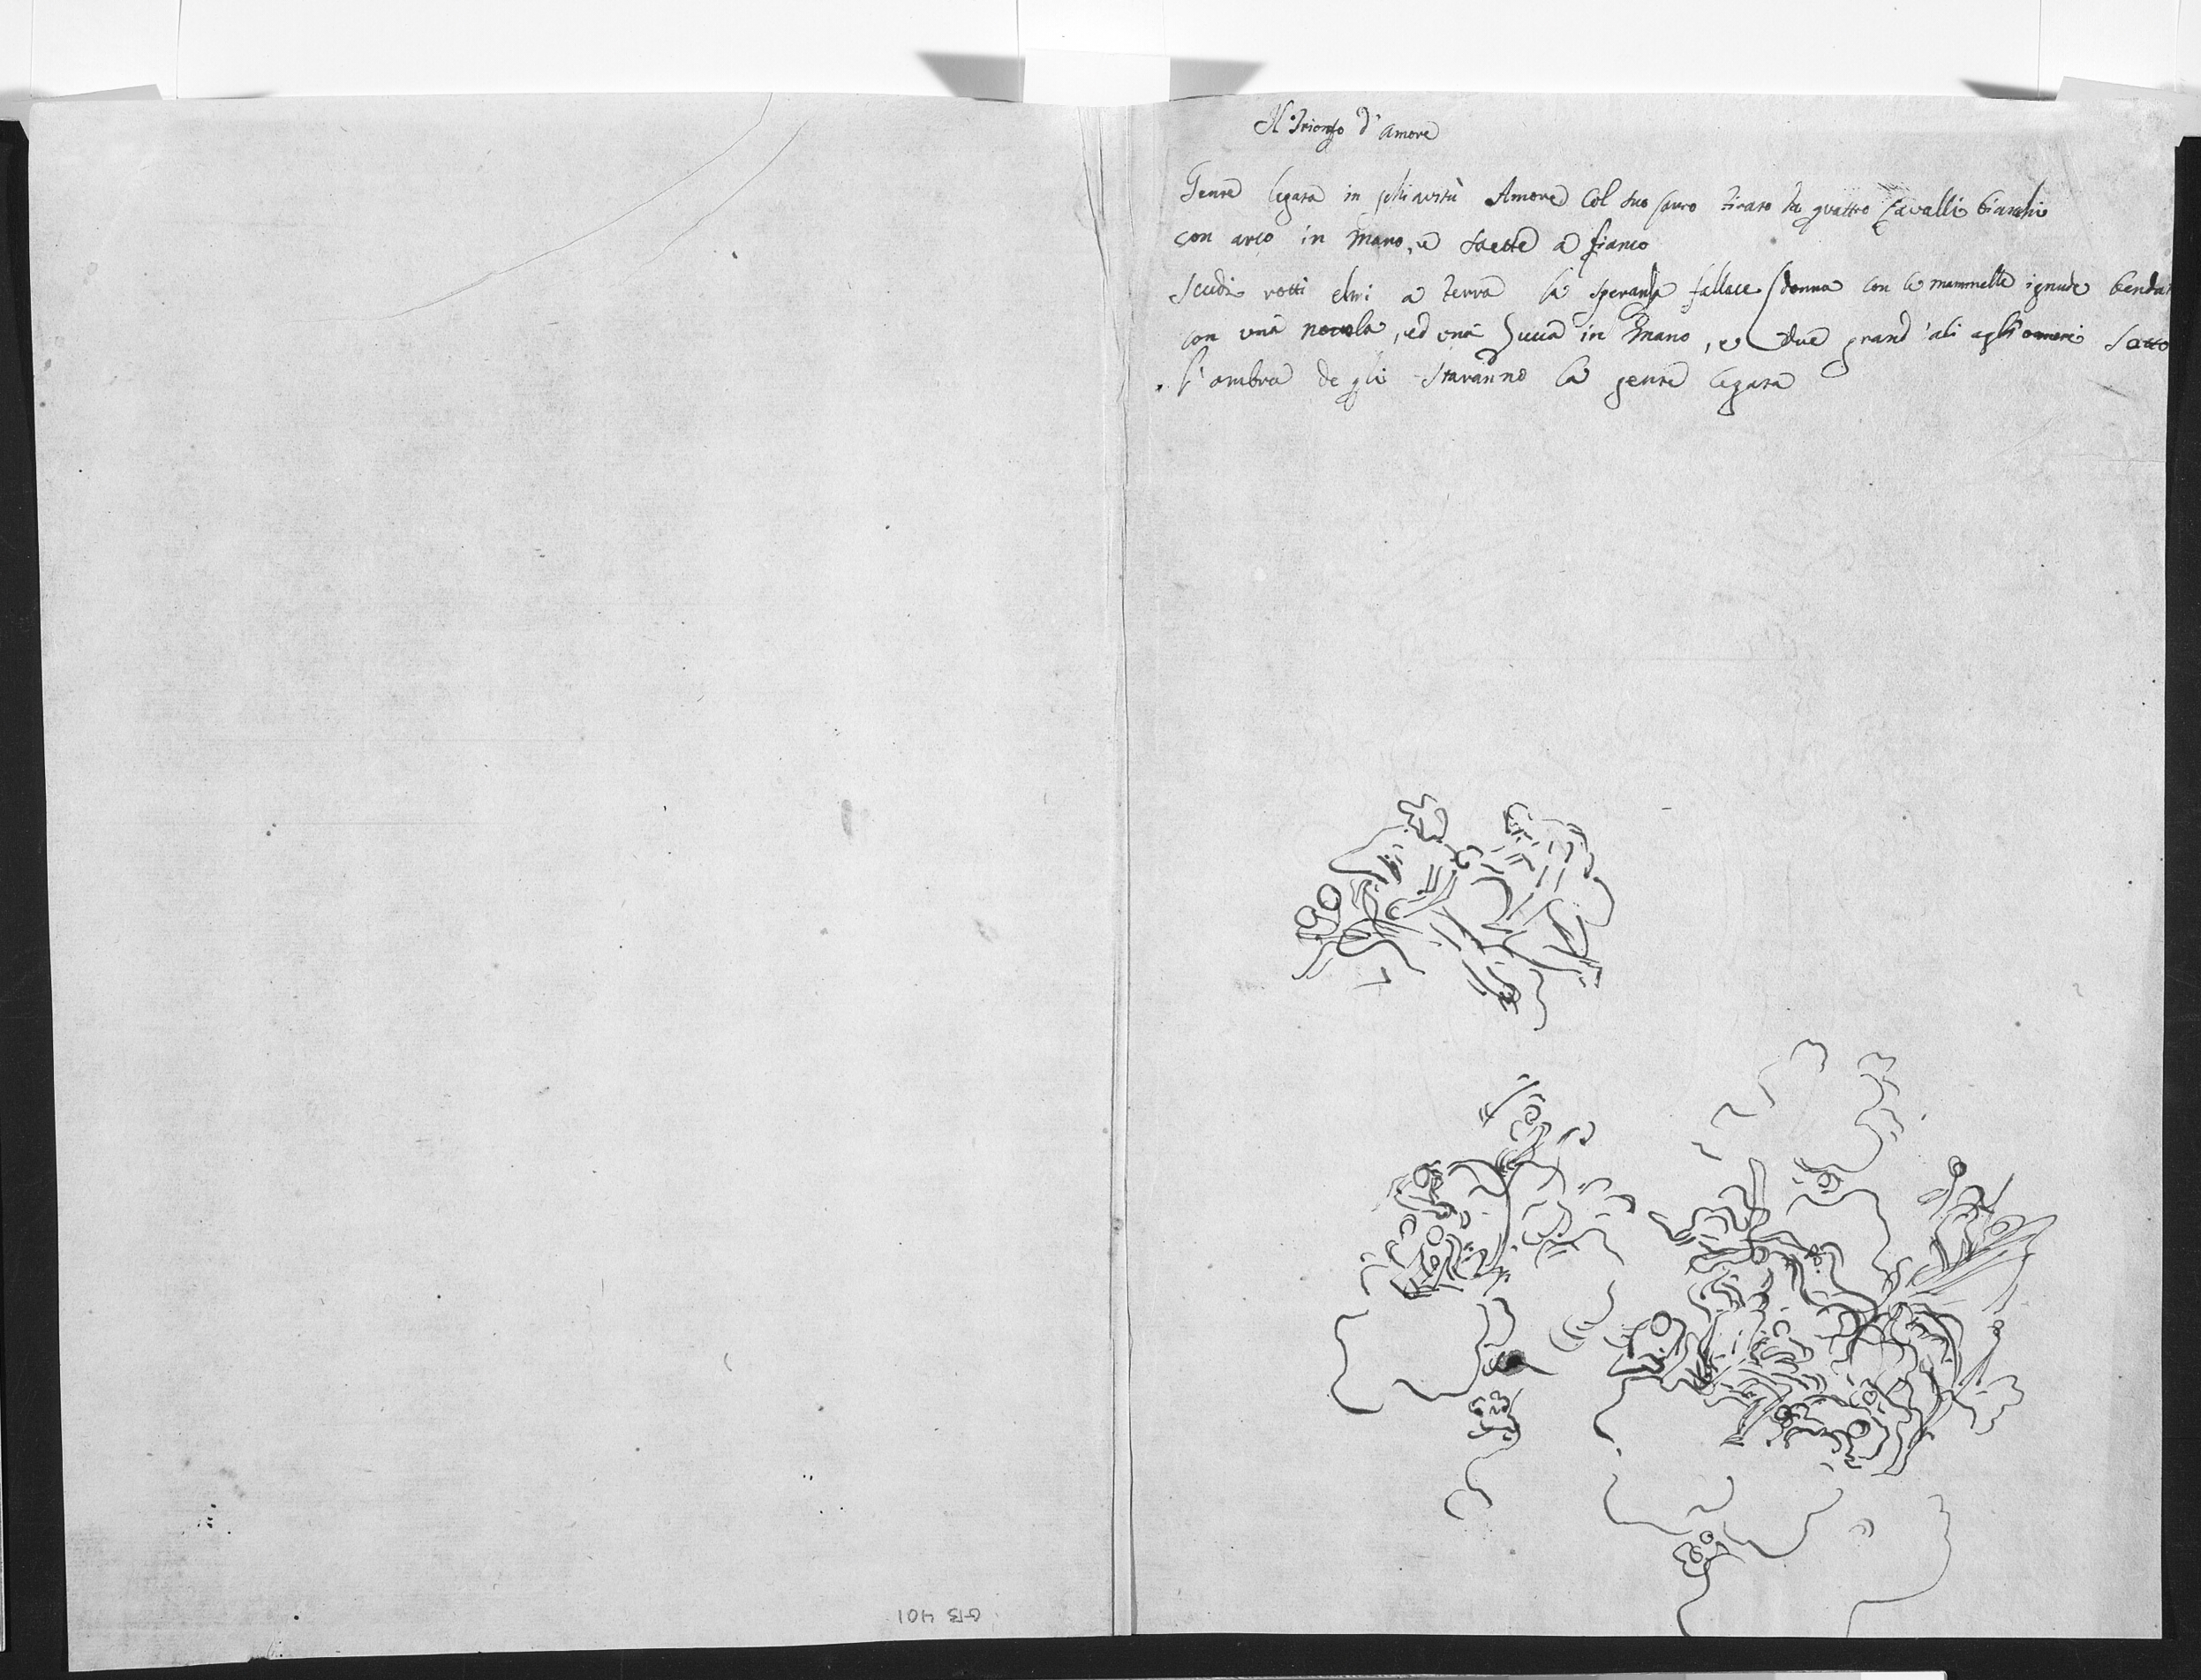 Il Trionfo d'Amore
Gente legata in schiavitù Amore Col suo Carro tirato da quattro Cavalli bianchi
con arco in Mano, e saette a fianco
Scudi rotti elmi a terra la speranza fallace (donna con le mammelle ignude benda
con una nuvola, ed una Zucca in Mano, e due grand'ali agli omeri sotto
l'ombra de gli staranno la gente legata
GB 401